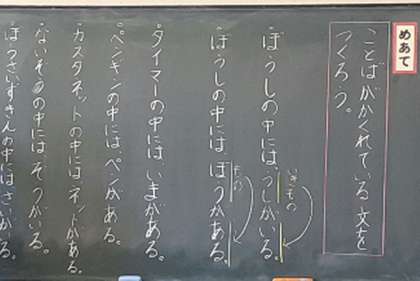 めあて
ことばがかくれている文を
つくろう。
ぼうしの中には、うしがいる。
いきもの
ぼうしの中には、ぼうがある。
もの
タイマーの中には、いまがある。
ペンギンの中には、ペンがある。
カスタネットの中には、ネットがある。
ないぞうの中には、ぞうがいる。
ぼうさいずきんの中には、さいがいる。